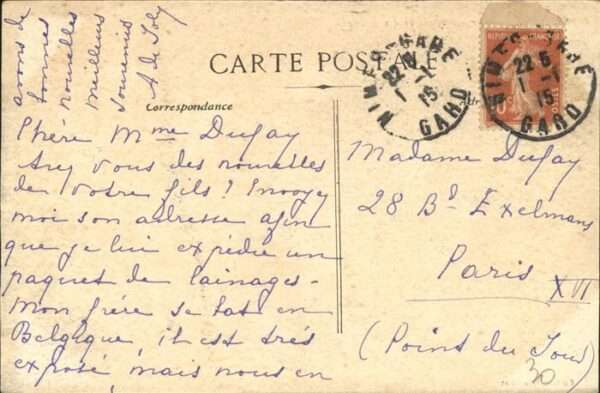 CARTE POSTALE
Correspondance
Chère Mme Dufay
Avez vous des nouvelles
de votre fils? Envoyez
moi son adresse afin
que je lui expédie un
paquet de lainages-
Mon frère se bat en
Belgique, il est très
exposé, mais nous en
avons de
bonnes
nouvelles
Meilleurs
souvenirs
A de Joly
NIMES-GARE
22
1-1
15
GARD
NIMES GARE
22 5
1-1
15
GARD
Madame Dufay
28 Bd Exelmans
Paris XVI
(Point du Jour)
30